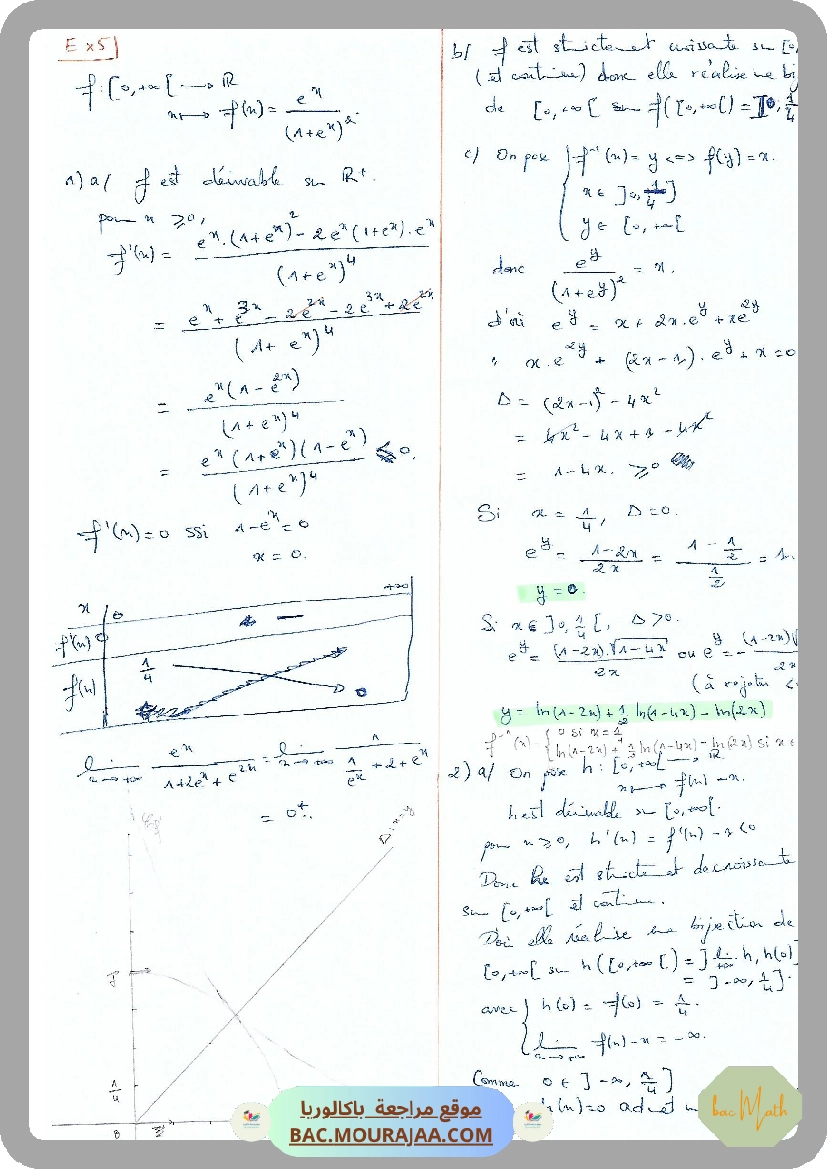 Ex5
f: [0,+∞[ → ℝ
x ↦ f(x) = e^x / (1+e^x)^2
1) a/ f est dérivable sur ℝ+.
pour x ≥ 0,
f'(x) = (e^x.(1+e^x)^2 - 2e^x(1+e^x).e^x) / (1+e^x)^4
= (e^x + e^3x - 2e^2x - 2e^3x + 2e^2x) / (1+e^x)^4
= e^x(1-e^2x) / (1+e^x)^4
= e^x(1+e^x)(1-e^x) / (1+e^x)^4 ≤ 0.
f'(x)=0 ssi 1-e^x=0
x=0.
x 0 +∞
f'(x) 0 -
f(x) 1/4 0
lim x→+∞ e^x / (1+2e^x+e^2x) = lim x→+∞ 1 / (1/e^x + 2 + e^x)
= 0+.
D: x=y
1/4
b/ f est strictement croissante sur [0,
(et continue) donc elle réalise une bij
de [0,+∞[ sur f([0,+∞[) = ]0, 1/4
c) On pose f^-1(x) = y <=> f(y) = x.
x ∈ ]0, 1/4]
y ∈ [0,+∞[
donc e^y / (1+e^y)^2 = x.
d'où e^y = x + 2x.e^y + xe^2y
x.e^2y + (2x-1).e^y + x = 0
Δ = (2x-1)^2 - 4x^2
= 4x^2 - 4x + 1 - 4x^2
= 1-4x. ≥ 0
Si x = 1/4, Δ=0.
e^y = (1-2x)/2x = (1 - 1/2) / (1/2) = 1.
y = 0.
Si x ∈ ]0, 1/4[, Δ > 0.
e^y = (1-2x).√(1-4x) / 2x ou e^y = - (1-2x)√ / 2x
(à rejeter <
y = ln(1-2x) + 1/2 ln(1-4x) - ln(2x)
f^-1(x) = { 0 si x = 1/4
ln(1-2x) + 1/2 ln(1-4x) - ln(2x) si x ∈
2) a/ On pose h: [0,+∞[ → ℝ
x ↦ f(x) - x.
h est dérivable sur [0,+∞[.
pour x ≥ 0, h'(x) = f'(x) - 1 < 0
Donc h est strictement decroissante
sur [0,+∞[ et continue.
D'où elle réalise une bijection de
[0,+∞[ sur h([0,+∞[) = ]lim +∞ h, h(0)]
= ]-∞, 1/4].
avec { h(0) = f(0) = 1/4.
lim x→+∞ f(x) - x = -∞.
Comme 0 ∈ ]-∞, 1/4]
h(x)=0 admet
موقع مراجعة باكالوريا
BAC.MOURAJAA.COM
bac Math